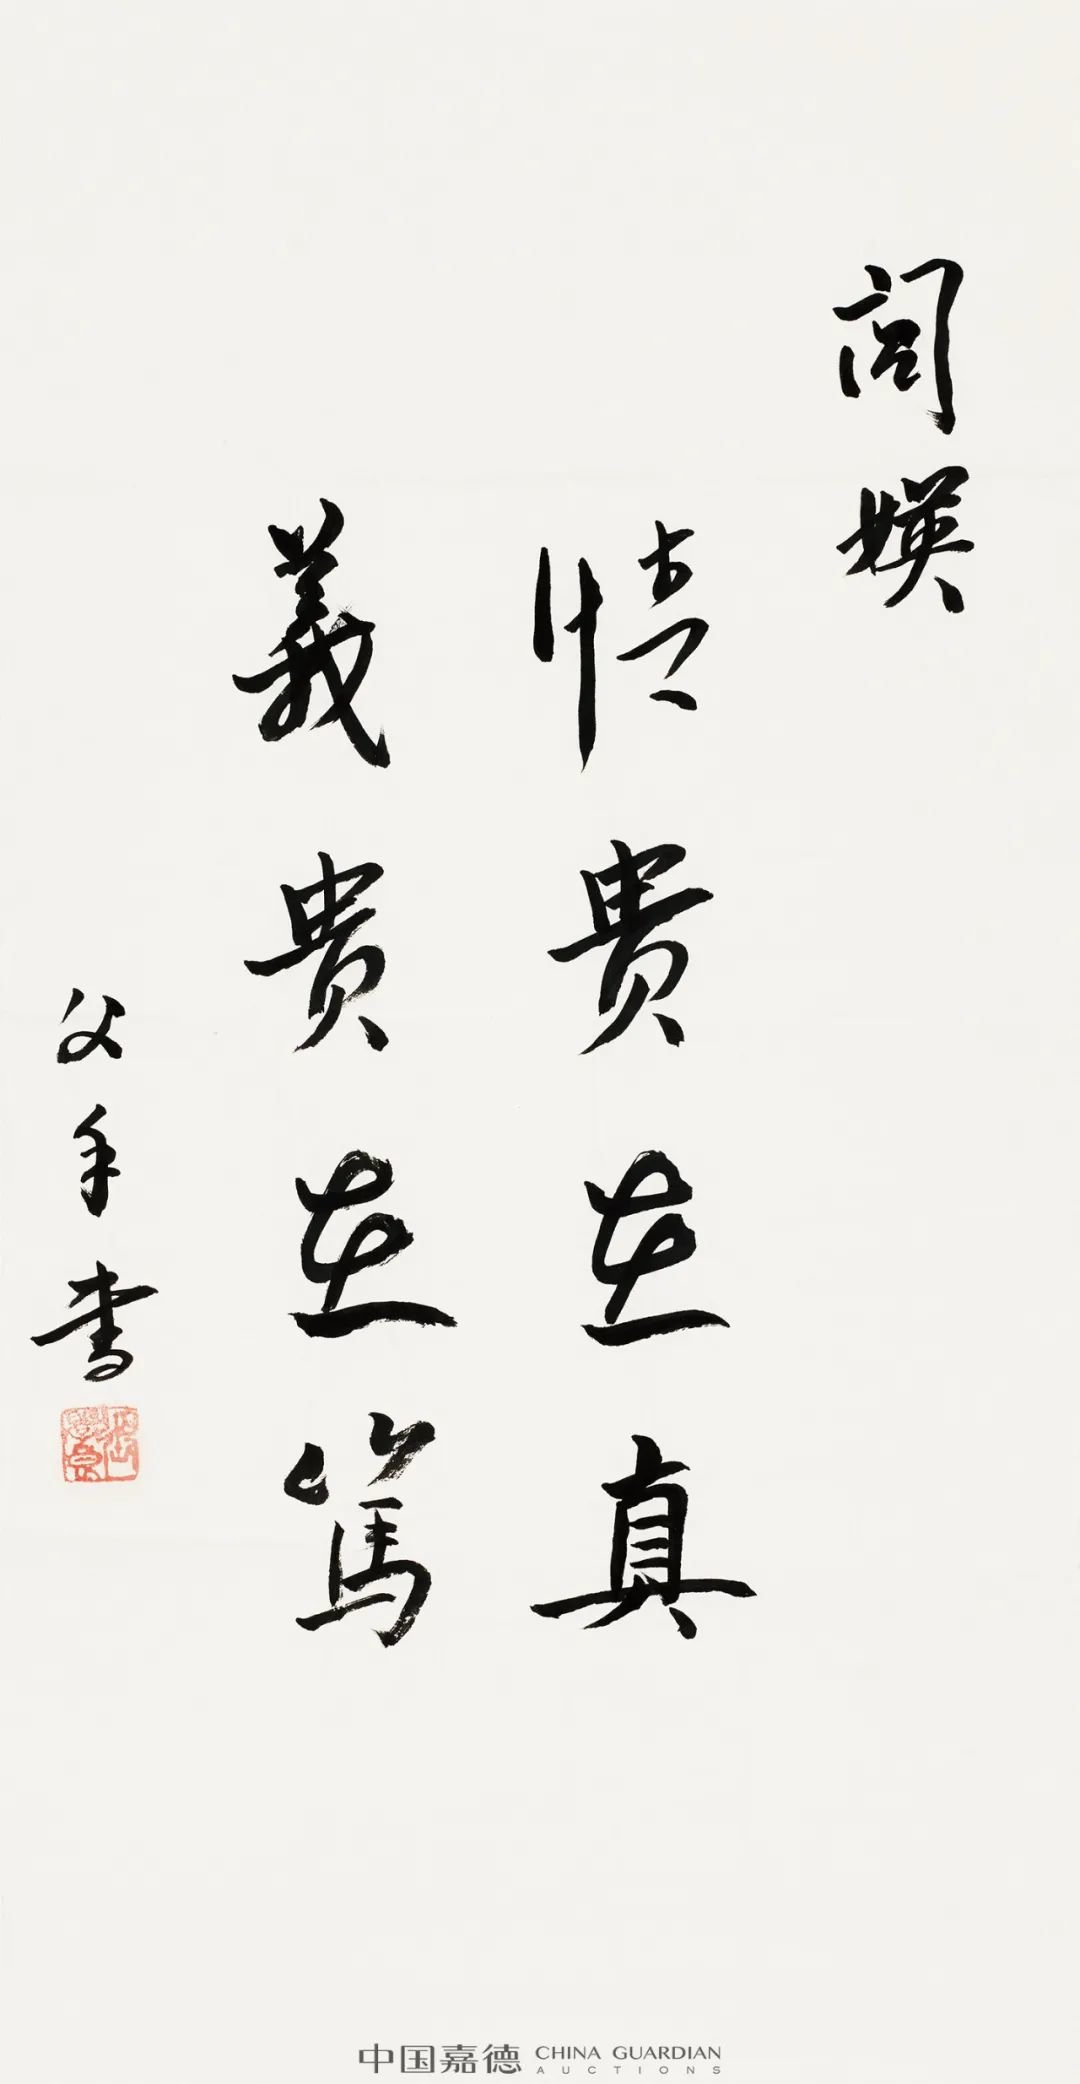 閭媖
情貴在真
義貴在篤
父手書
中国嘉德 CHINA GUARDIAN AUCTIONS